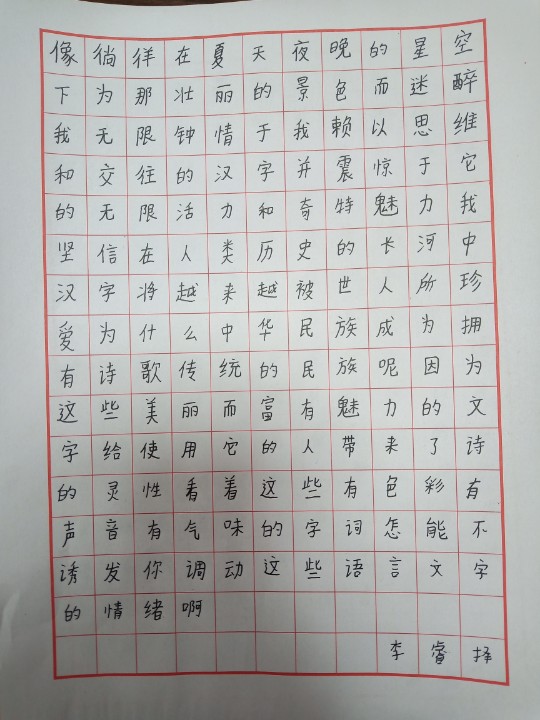 像徜徉在夏天夜晚的星空
下为那壮丽的景色而迷醉
我无限钟情于我赖以思维
和交往的汉字并震惊于它
的无限活力和奇特魅力我
坚信在人类历史的长河中
汉字将越来越被世人所珍
爱为什么中华民族成为拥
有诗歌传统的民族呢因为
这些美丽而富有魅力的文
字给使用它的人带来了诗
的灵性看着这些有色彩有
声音有气味的字词怎能不
诱发你调动这些语言文字
的情绪啊
李睿择